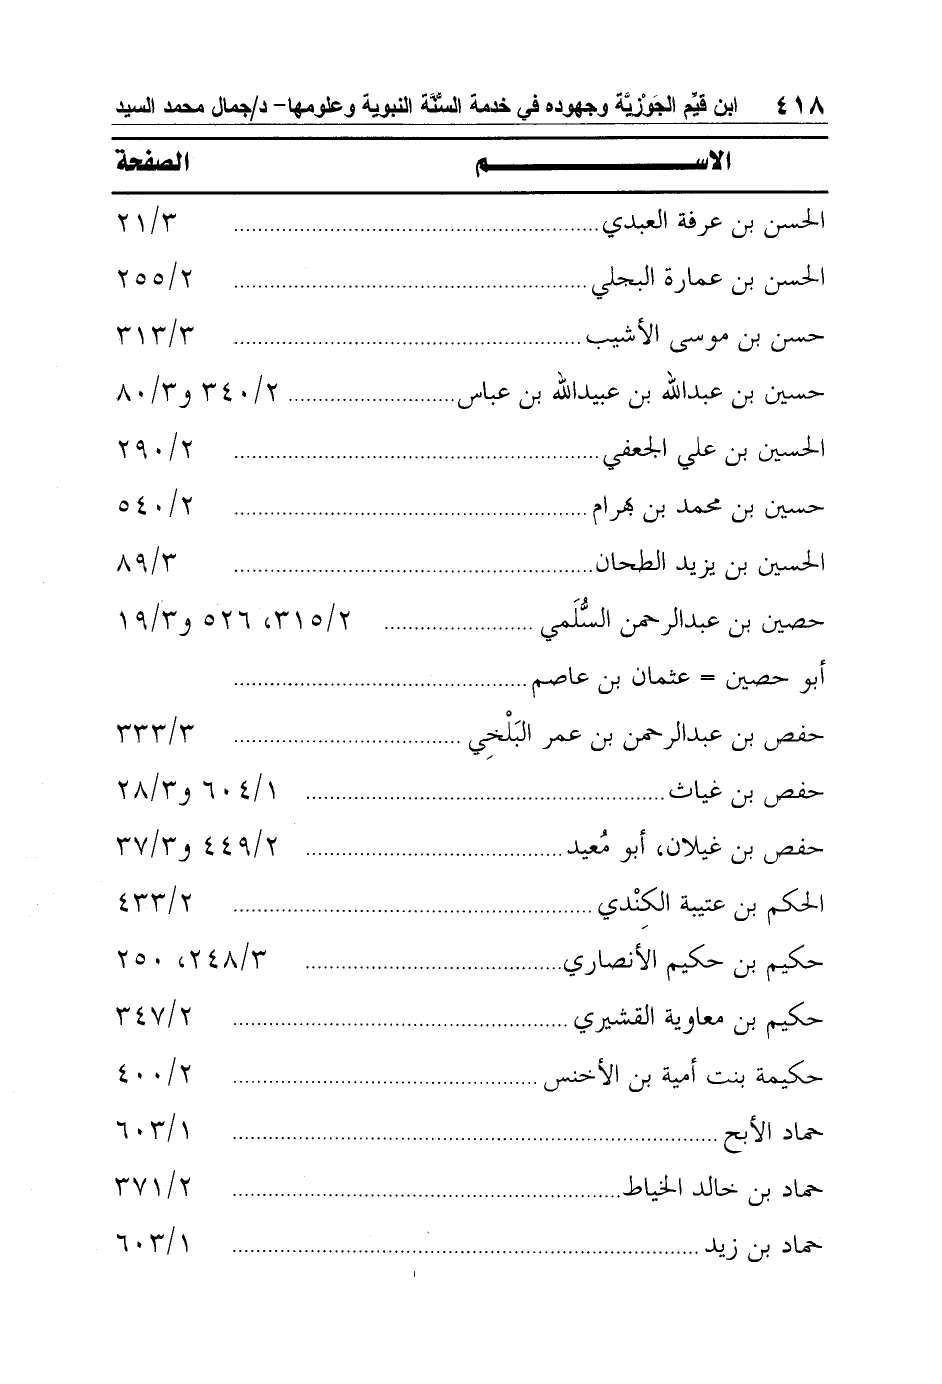 ٤١٨ ابن قيِّم الجَوْزيَّة وجهوده في خدمة السُّنَّة النبوية وعلومها- د/جمال محمد السيد
الاســـــــــــم الصفحة
الحسن بن عرفة العبدي ........ ٢١/٣
الحسن بن عمارة البجلي ........ ٢٥٥/٢
حسن بن موسى الأشيب ........ ٣١٣/٣
حسين بن عبدالله بن عبيدالله بن عباس ........ ٣٤٠/٢ و٨٠/٣
الحسين بن علي الجعفي ........ ٢٩٠/٢
حسين بن محمد بن بهرام ........ ٥٤٠/٢
الحسين بن يزيد الطحان ........ ٨٩/٣
حصين بن عبدالرحمن السُّلَمي ........ ٣١٥/٢، ٥٢٦ و١٩/٣
أبو حصين = عثمان بن عاصم ........
حفص بن عبدالرحمن بن عمر البَلْخِي ........ ٣٣٣/٣
حفص بن غياث ........ ٦٠٤/١ و٢٨/٣
حفص بن غيلان، أبو مُعيد ........ ٤٤٩/٢ و٣٧/٣
الحكم بن عتيبة الكِنْدي ........ ٤٣٣/٢
حكيم بن حكيم الأنصاري ........ ٢٤٨/٣، ٢٥٠
حكيم بن معاوية القشيري ........ ٣٤٧/٢
حكيمة بنت أمية بن الأخنس ........ ٤٠٠/٢
حماد الأبح ........ ٦٠٣/١
حماد بن خالد الخياط ........ ٣٧١/٢
حماد بن زيد ........ ٦٠٣/١